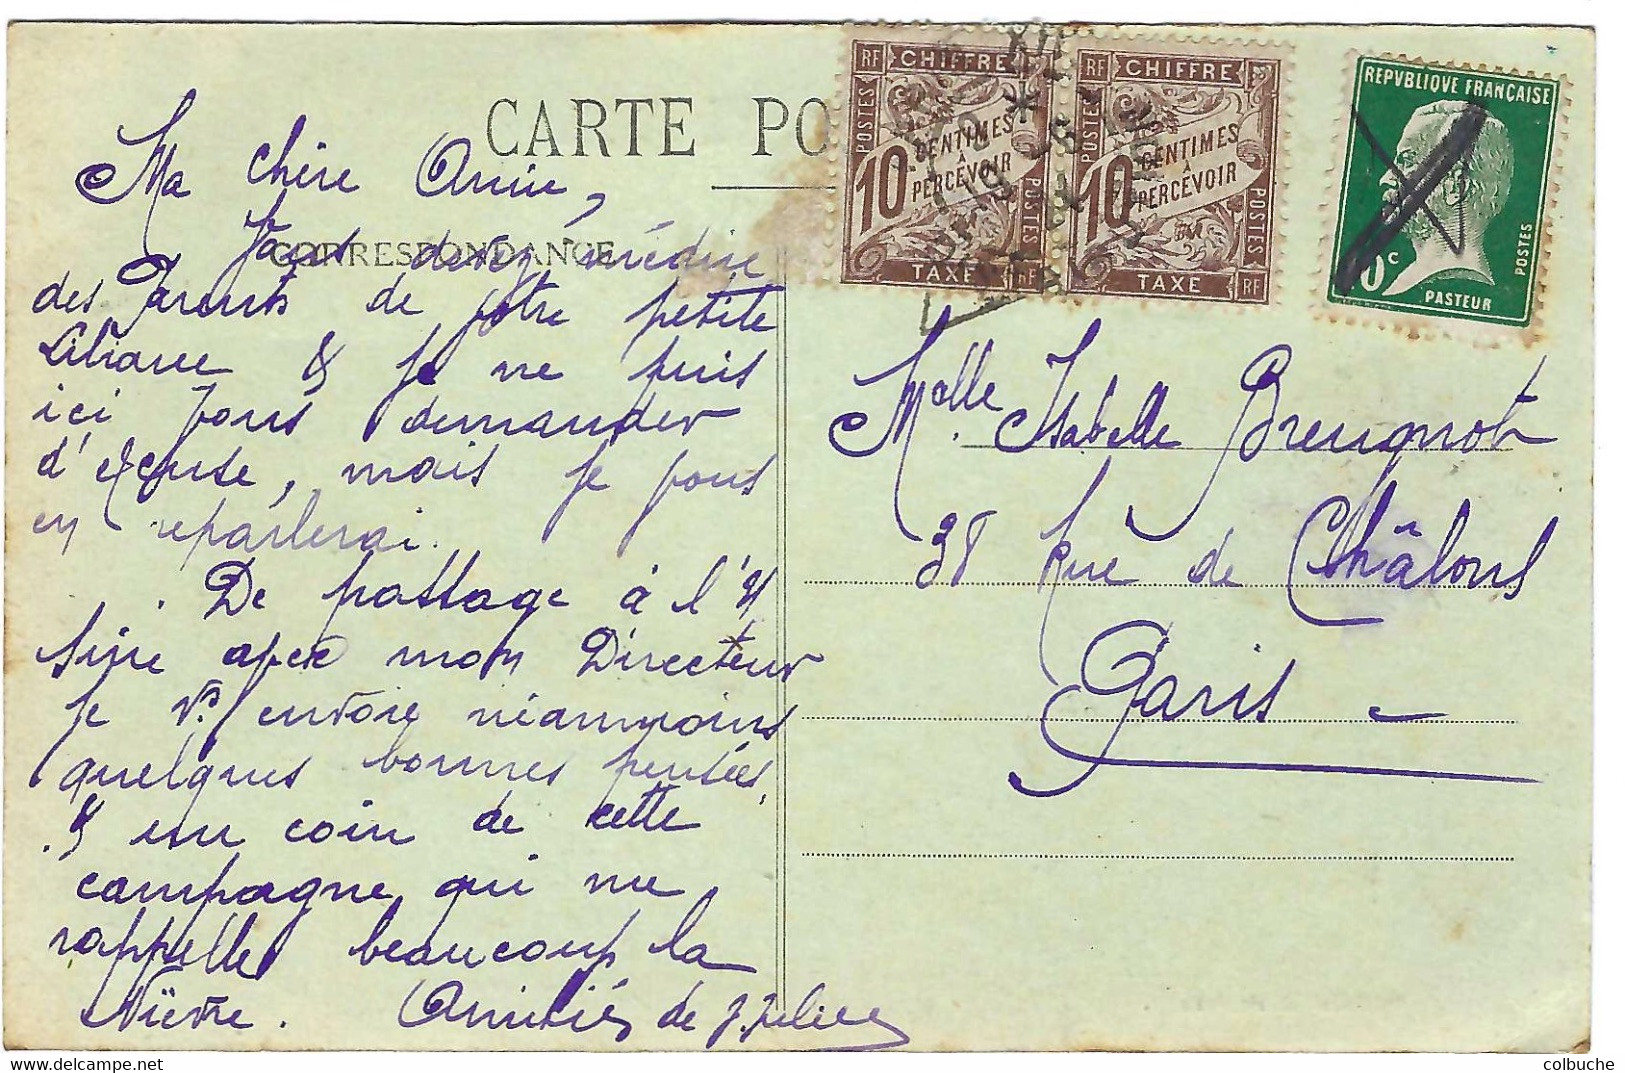 CARTE PO
CORRESPONDANCE
RF CHIFFRE
POSTES
10 CENTIMES
À
PERCEVOIR
POSTES
TAXE RF
RF CHIFFRE
POSTES
10 CENTIMES
À
PERCEVOIR
POSTES
TAXE RF
REPVBLIQUE FRANÇAISE
0c
POSTES
PASTEUR
Ma chère Amie,
Vous devez médire
des Parents de votre petite
Liliane & je ne puis
ici vous demander
d'excuse, mais je vous
en reparlerai.
De passage à l'U
sine avec mon Directeur
je vs envoie néanmoins
quelques bonnes pensées,
& un coin de cette
campagne qui me
rappelle beaucoup la
Nièvre. Amitiés de J.
Melle Isabelle Breugnot
38 Rue de Châlons
Paris
colbuche